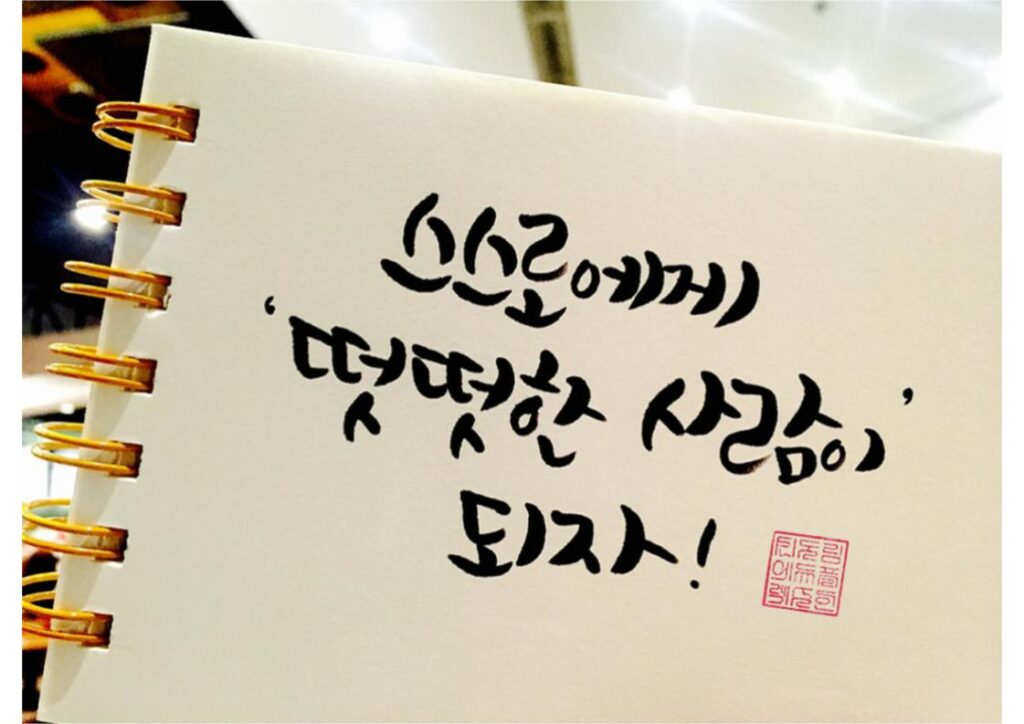 스스로에게
'떳떳한 사람이'
되자!